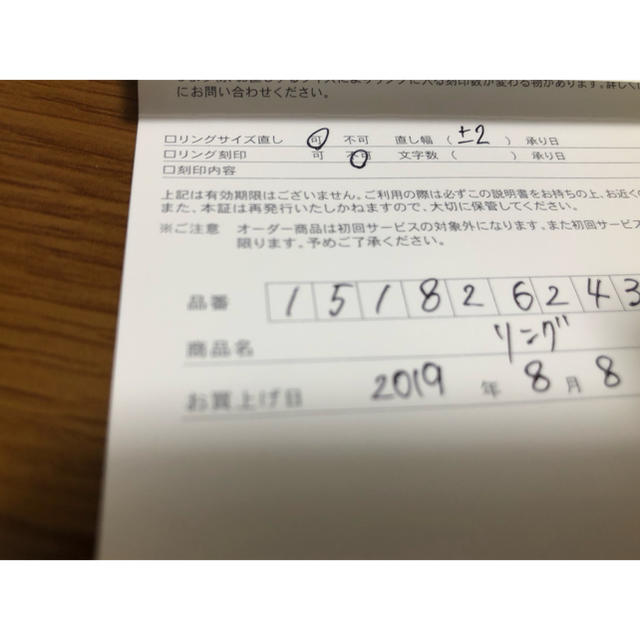 にお問い合わせください。
□リングサイズ直し 可 不可 直し幅 ( ±2 ) 承り日
□リング刻印 可 不可 文字数 ( ) 承り日
□刻印内容
上記は有効期限はございません。ご利用の際は必ずこの説明書をお持ちの上、お近くの
また、本証は再発行いたしかねますので、大切に保管してください。
※ご注意 オーダー商品は初回サービスの対象外になります。また初回サービス
限ります。予めご了承ください。
品番 1 5 1 8 2 6 2 4 3
商品名 リング
お買上げ日 2019 年 8 月 8